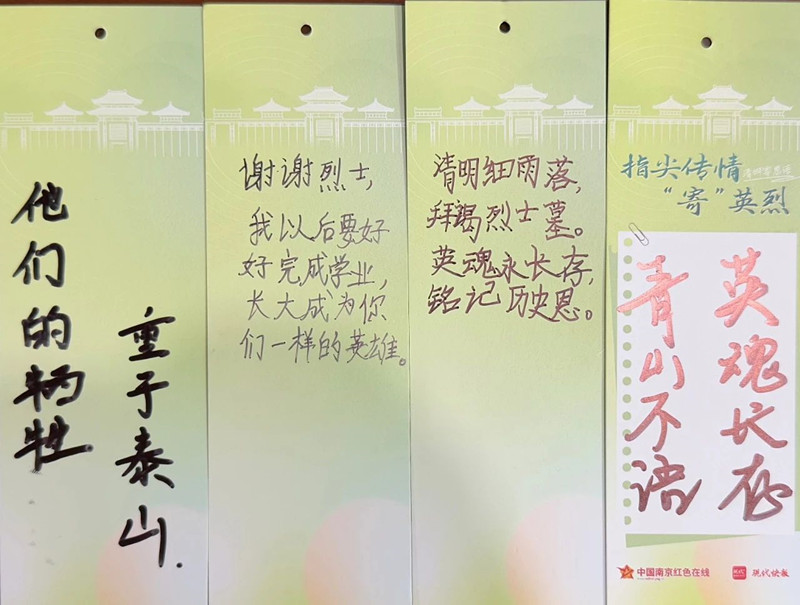 他们的牺牲
重于泰山.
谢谢烈士,
我以后要好
好完成学业,
长大成为你
们一样的英雄。
清明细雨落,
拜谒烈士墓。
英魂永长存,
铭记历史恩。
指尖传情
“寄”英烈
青山不语
英魂长存
中国南京红色在线
现代快报